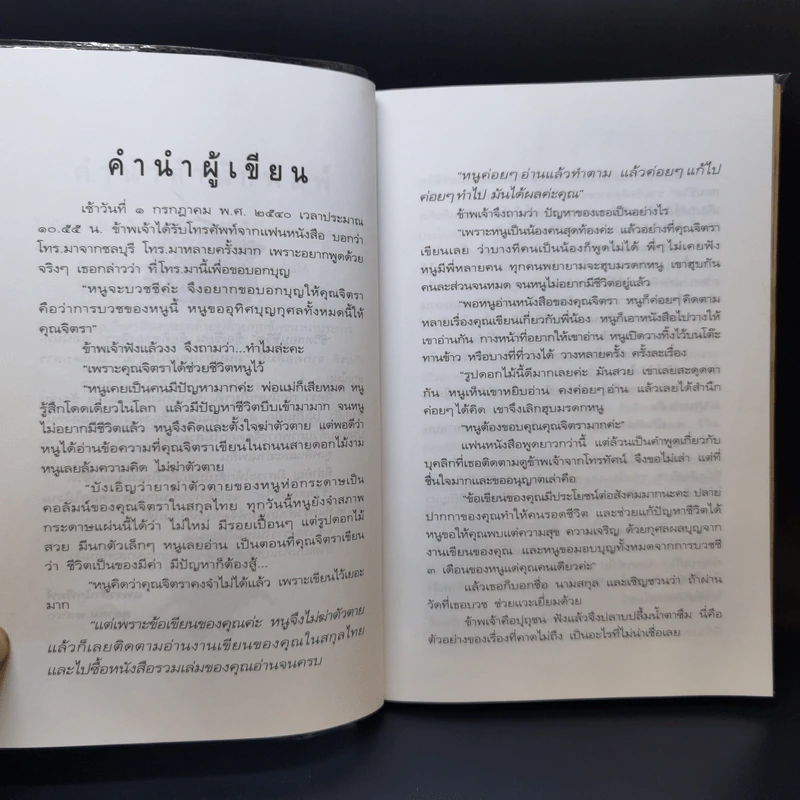 คำนำผู้เขียน
เช้าวันที่ ๑ กรกฎาคม พ.ศ. ๒๕๔๐ เวลาประมาณ
๑๐.๕๕ น. ข้าพเจ้าได้รับโทรศัพท์จากแฟนหนังสือ บอกว่า
โทร.มาจากชลบุรี โทร.มาหลายครั้งมาก เพราะอยากพูดด้วย
จริงๆ เธอกล่าวว่า ที่โทร.มานี้เพื่อขอบอกบุญ
"หนูจะบวชชีค่ะ จึงอยากขอบอกบุญให้คุณจิตรา
คือว่าการบวชของหนูนี้ หนูขออุทิศบุญกุศลทั้งหมดนี้ให้
คุณจิตรา"
ข้าพเจ้าฟังแล้วงง จึงถามว่า...ทำไมล่ะคะ
"เพราะคุณจิตราได้ช่วยชีวิตหนูไว้
"หนูเคยเป็นคนมีปัญหามากค่ะ พ่อแม่ก็เสียหมด หนู
รู้สึกโดดเดี่ยวในโลก แล้วมีปัญหาชีวิตบีบเข้ามามาก จนหนู
ไม่อยากมีชีวิตแล้ว หนูจึงคิดและตั้งใจฆ่าตัวตาย แต่พอดีว่า
หนูได้อ่านข้อความที่คุณจิตราเขียนในถนนสายดอกไม้งาม
หนูเลยล้มความคิด ไม่ฆ่าตัวตาย
"บังเอิญว่ายาฆ่าตัวตายของหนูห่อกระดาษเป็น
คอลัมน์ของคุณจิตราในสกุลไทย ทุกวันนี้หนูยังจำสภาพ
กระดาษแผ่นนี้ได้ว่า ไม่ใหม่ มีรอยเปื้อนๆ แต่รูปดอกไม้
สวย มีนกตัวเล็กๆ หนูเลยอ่าน เป็นตอนที่คุณจิตราเขียน
ว่า ชีวิตเป็นของมีค่า มีปัญหาก็ต้องสู้...
"หนูคิดว่าคุณจิตราคงจำไม่ได้แล้ว เพราะเขียนไว้เยอะ
มาก
"แต่เพราะข้อเขียนของคุณค่ะ หนูจึงไม่ฆ่าตัวตาย
แล้วก็เลยติดตามอ่านงานเขียนของคุณในสกุลไทย
และไปซื้อหนังสือรวมเล่มของคุณอ่านจนครบ
"หนูค่อยๆ อ่านแล้วทำตาม แล้วค่อยๆ แก้ไป
ค่อยๆ ทำไป มันได้ผลค่ะคุณ"
ข้าพเจ้าจึงถามว่า ปัญหาของเธอเป็นอย่างไร
"เพราะหนูเป็นน้องคนสุดท้องค่ะ แล้วอย่างที่คุณจิตรา
เขียนเลย ว่าบางทีคนเป็นน้องก็พูดไม่ได้ พี่ๆ ไม่เคยฟัง
หนูมีพี่หลายคน ทุกคนพยายามจะฮุบมรดกหนู เขาฮุบกัน
คนละส่วนจนหมด จนหนูไม่อยากมีชีวิตอยู่แล้ว
"พอหนูอ่านหนังสือของคุณจิตรา หนูก็ค่อยๆ คิดตาม
หลายเรื่องคุณเขียนเกี่ยวกับพี่น้อง หนูก็เอาหนังสือไปวางให้
เขาอ่านกัน กางหน้าที่อยากให้เขาอ่าน หนูเปิดวางทิ้งไว้บนโต๊ะ
ทานข้าว หรือบางที่ที่วางได้ วางหลายครั้ง ครั้งละเรื่อง
"รูปดอกไม้นี้ดีมากเลยค่ะ มันสวย เขาเลยสะดุดตา
กัน หนูเห็นเขาหยิบอ่าน คงค่อยๆ อ่าน แล้วเลยได้สำนึก
ค่อยๆ ได้คิด เขาจึงเลิกฮุบมรดกหนู
"หนูต้องขอบคุณคุณจิตรามากค่ะ"
แฟนหนังสือพูดยาวกว่านี้ แต่ล้วนเป็นคำพูดเกี่ยวกับ
บุคลิกที่เธอติดตามดูข้าพเจ้าจากโทรทัศน์ จึงขอไม่เล่า แต่ที่
ชื่นใจมากและขออนุญาตเล่าคือ
"ข้อเขียนของคุณมีประโยชน์ต่อสังคมมากนะคะ ปลาย
ปากกาของคุณทำให้คนรอดชีวิต และช่วยแก้ปัญหาชีวิตได้
หนูขอให้คุณพบแต่ความสุข ความเจริญ ด้วยกุศลผลบุญจาก
งานเขียนของคุณ และหนูขอมอบบุญทั้งหมดจากการบวชชี
๓ เดือนของหนูแด่คุณคนเดียวค่ะ"
แล้วเธอก็บอกชื่อ นามสกุล และเชิญชวนว่า ถ้าผ่าน
วัดที่เธอบวช ช่วยแวะเยี่ยมด้วย
ข้าพเจ้าคือปุถุชน ฟังแล้วจึงปลาบปลื้มน้ำตาซึม นี่คือ
ตัวอย่างของเรื่องที่คาดไม่ถึง เป็นอะไรที่ไม่น่าเชื่อเลย